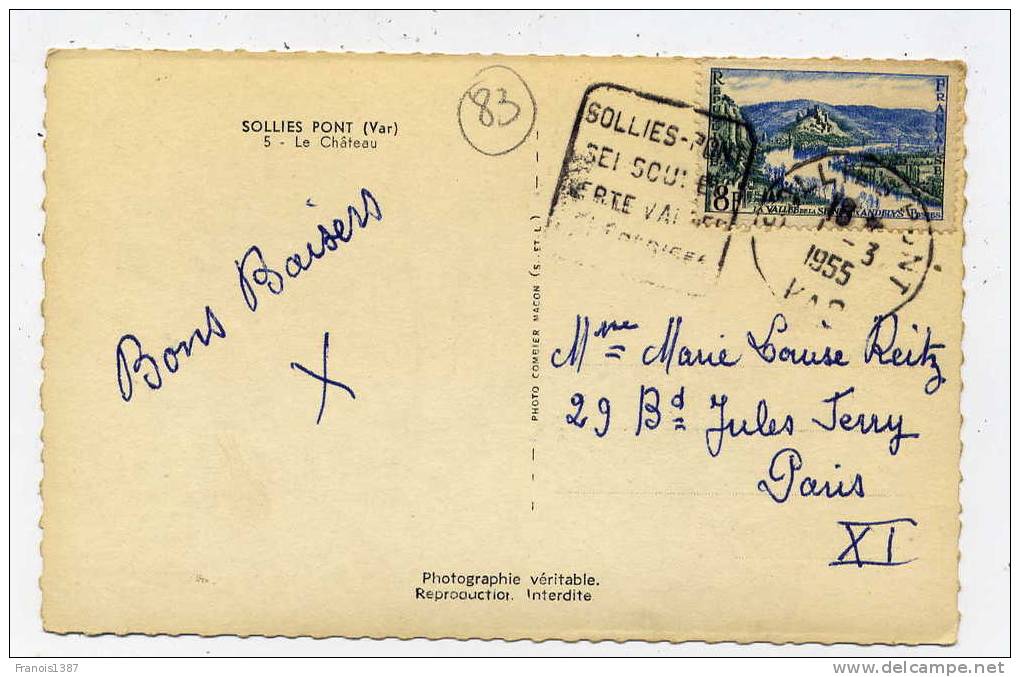 SOLLIES PONT (Var)
5 - Le Château
83
SOLLIES-PONT
SES SOURCES
VALLEE
REPUBLIQUE FRANÇAISE
8F
LA VALLEE DE LA SEINE AUX ANDELYS POSTES
SOLLIES PONT
18 *
- 3
1955
VAR
Bons Baisers
X
PHOTO COMBIER MACON (S. ET L.)
Mme Marie Louise Reitz
29 Bd Jules Ferry
Paris
XI
Photographie véritable.
Reproduction Interdite
Francois1387
delcampe.net